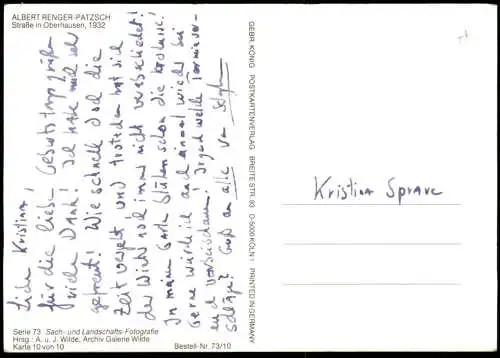 ALBERT RENGER-PATZSCH
Straße in Oberhausen, 1932
Liebe Kristina!
für die lieben Geburtstagsgrüße
vielen Dank! Ich habe mich sehr
gefreut! Wie schnell doch die
Zeit vergeht und trotzdem hat sich
der Winter noch immer nicht verabschiedet!
In meinem Garten blühen schon die Krokusse!
Gerne würde ich auch einmal wieder bei
euch vorbeischauen. Irgendwelche Terminvor-
schläge? Gruß an alle von
Serie 73 Sach- und Landschafts-Fotografie
Hrsg.: A. u. J. Wilde, Archiv Galerie Wilde
Karte 10 von 10
Bestell-Nr. 73/10
GEBR. KÖNIG POSTKARTENVERLAG BREITE STR. 93 D-5000 KÖLN 1 PRINTED IN GERMANY
Kristina Sprave